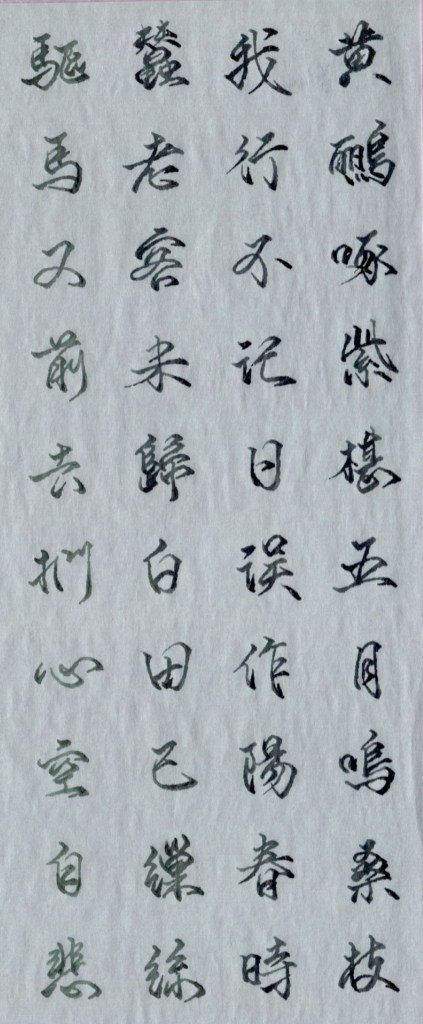 黄鸝啄紫椹五月鳴桑枝
我行不記日誤作陽春時
蠶老客未歸白田已繅絲
驅馬又前去捫心空自悲